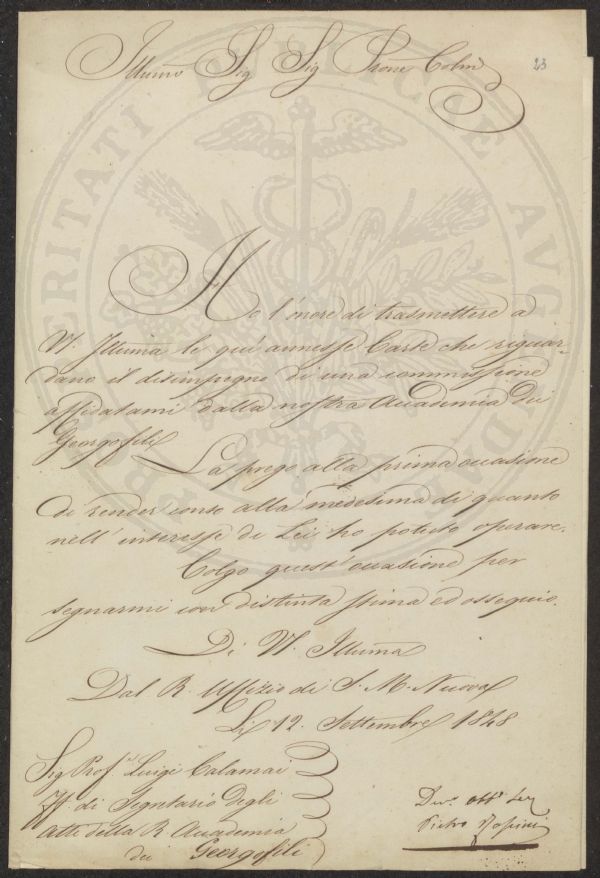 23
Illumo Sig Sig Prone Colmo
Ho l'onore di trasmettere a
V. Illuma le quì annesse Carte che riguar-
dano il disimpegno di una commissione
affidatami dalla nostra Accademia dei
Georgofili
La prego alla prima occasione
di render conto alla medesima di quanto
nell'interesse di Lei ho potuto operare.
Colgo quest'occasione per
segnarmi con distinta stima ed ossequio.
Di V. Illuma
Dal R. Uffizio di S. M. Nuova
Li 12. Settembre 1848
Sig Prof. Luigi Calamai
ff di Segretario degli
atti della R Accademia
dei Georgofili
Dev. Obb. Ser
Pietro
PROSPERITATI PVBLICAE AVGENDAE